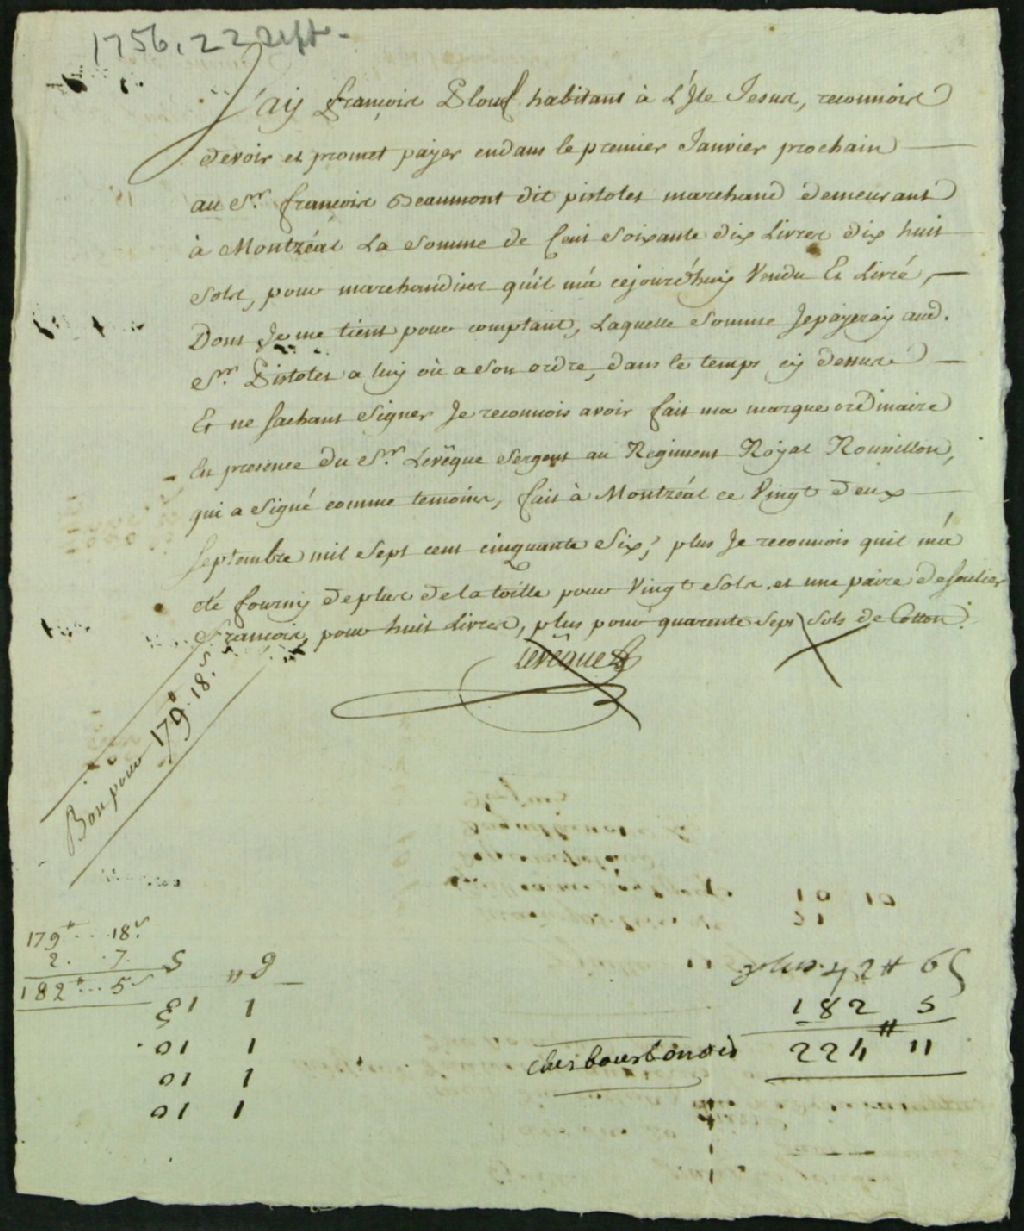 1756. 22 7bre.
J'ay françois Plouf habitant à L'Jle Jesus, reconnois
devoir et promet payer endans le premier Janvier prochain
au Sr. françois Beaumont dit pistolet marchand demeurant
à Montréal La Somme de Cent Soixante dix Livres dix huit
Sols, pour marchandises qu'il m'a cejourd'huy Vendu Et Livré,
Dont Je me tient pour comptant, Laquelle Somme Jepayray aud.
Sr. Pistolet a luy où a Son ordre, dans le temps cy dessus
Et ne Sachant Signer Je reconnois avoir fait ma marque ordinaire
En presence du Sr. Levêque Sergent au Regiment Royal Rousillon,
qui a Signé comme temoins, fait à Montréal ce Vingt deux
Septembre mil Sept cent cinquante Six, plus Je reconnois quil m'a
été fourny deplus de la toille pour Vingt Sols et une paire de Soulier
François, pour huit Livres, plus pour quarente Sept Sols de Cotton.
Levêque
Bon pour 179# 18s
179# .. 18s
2. . 7.
182# .. 5s
182 5
224# 11
Ches bourbonois